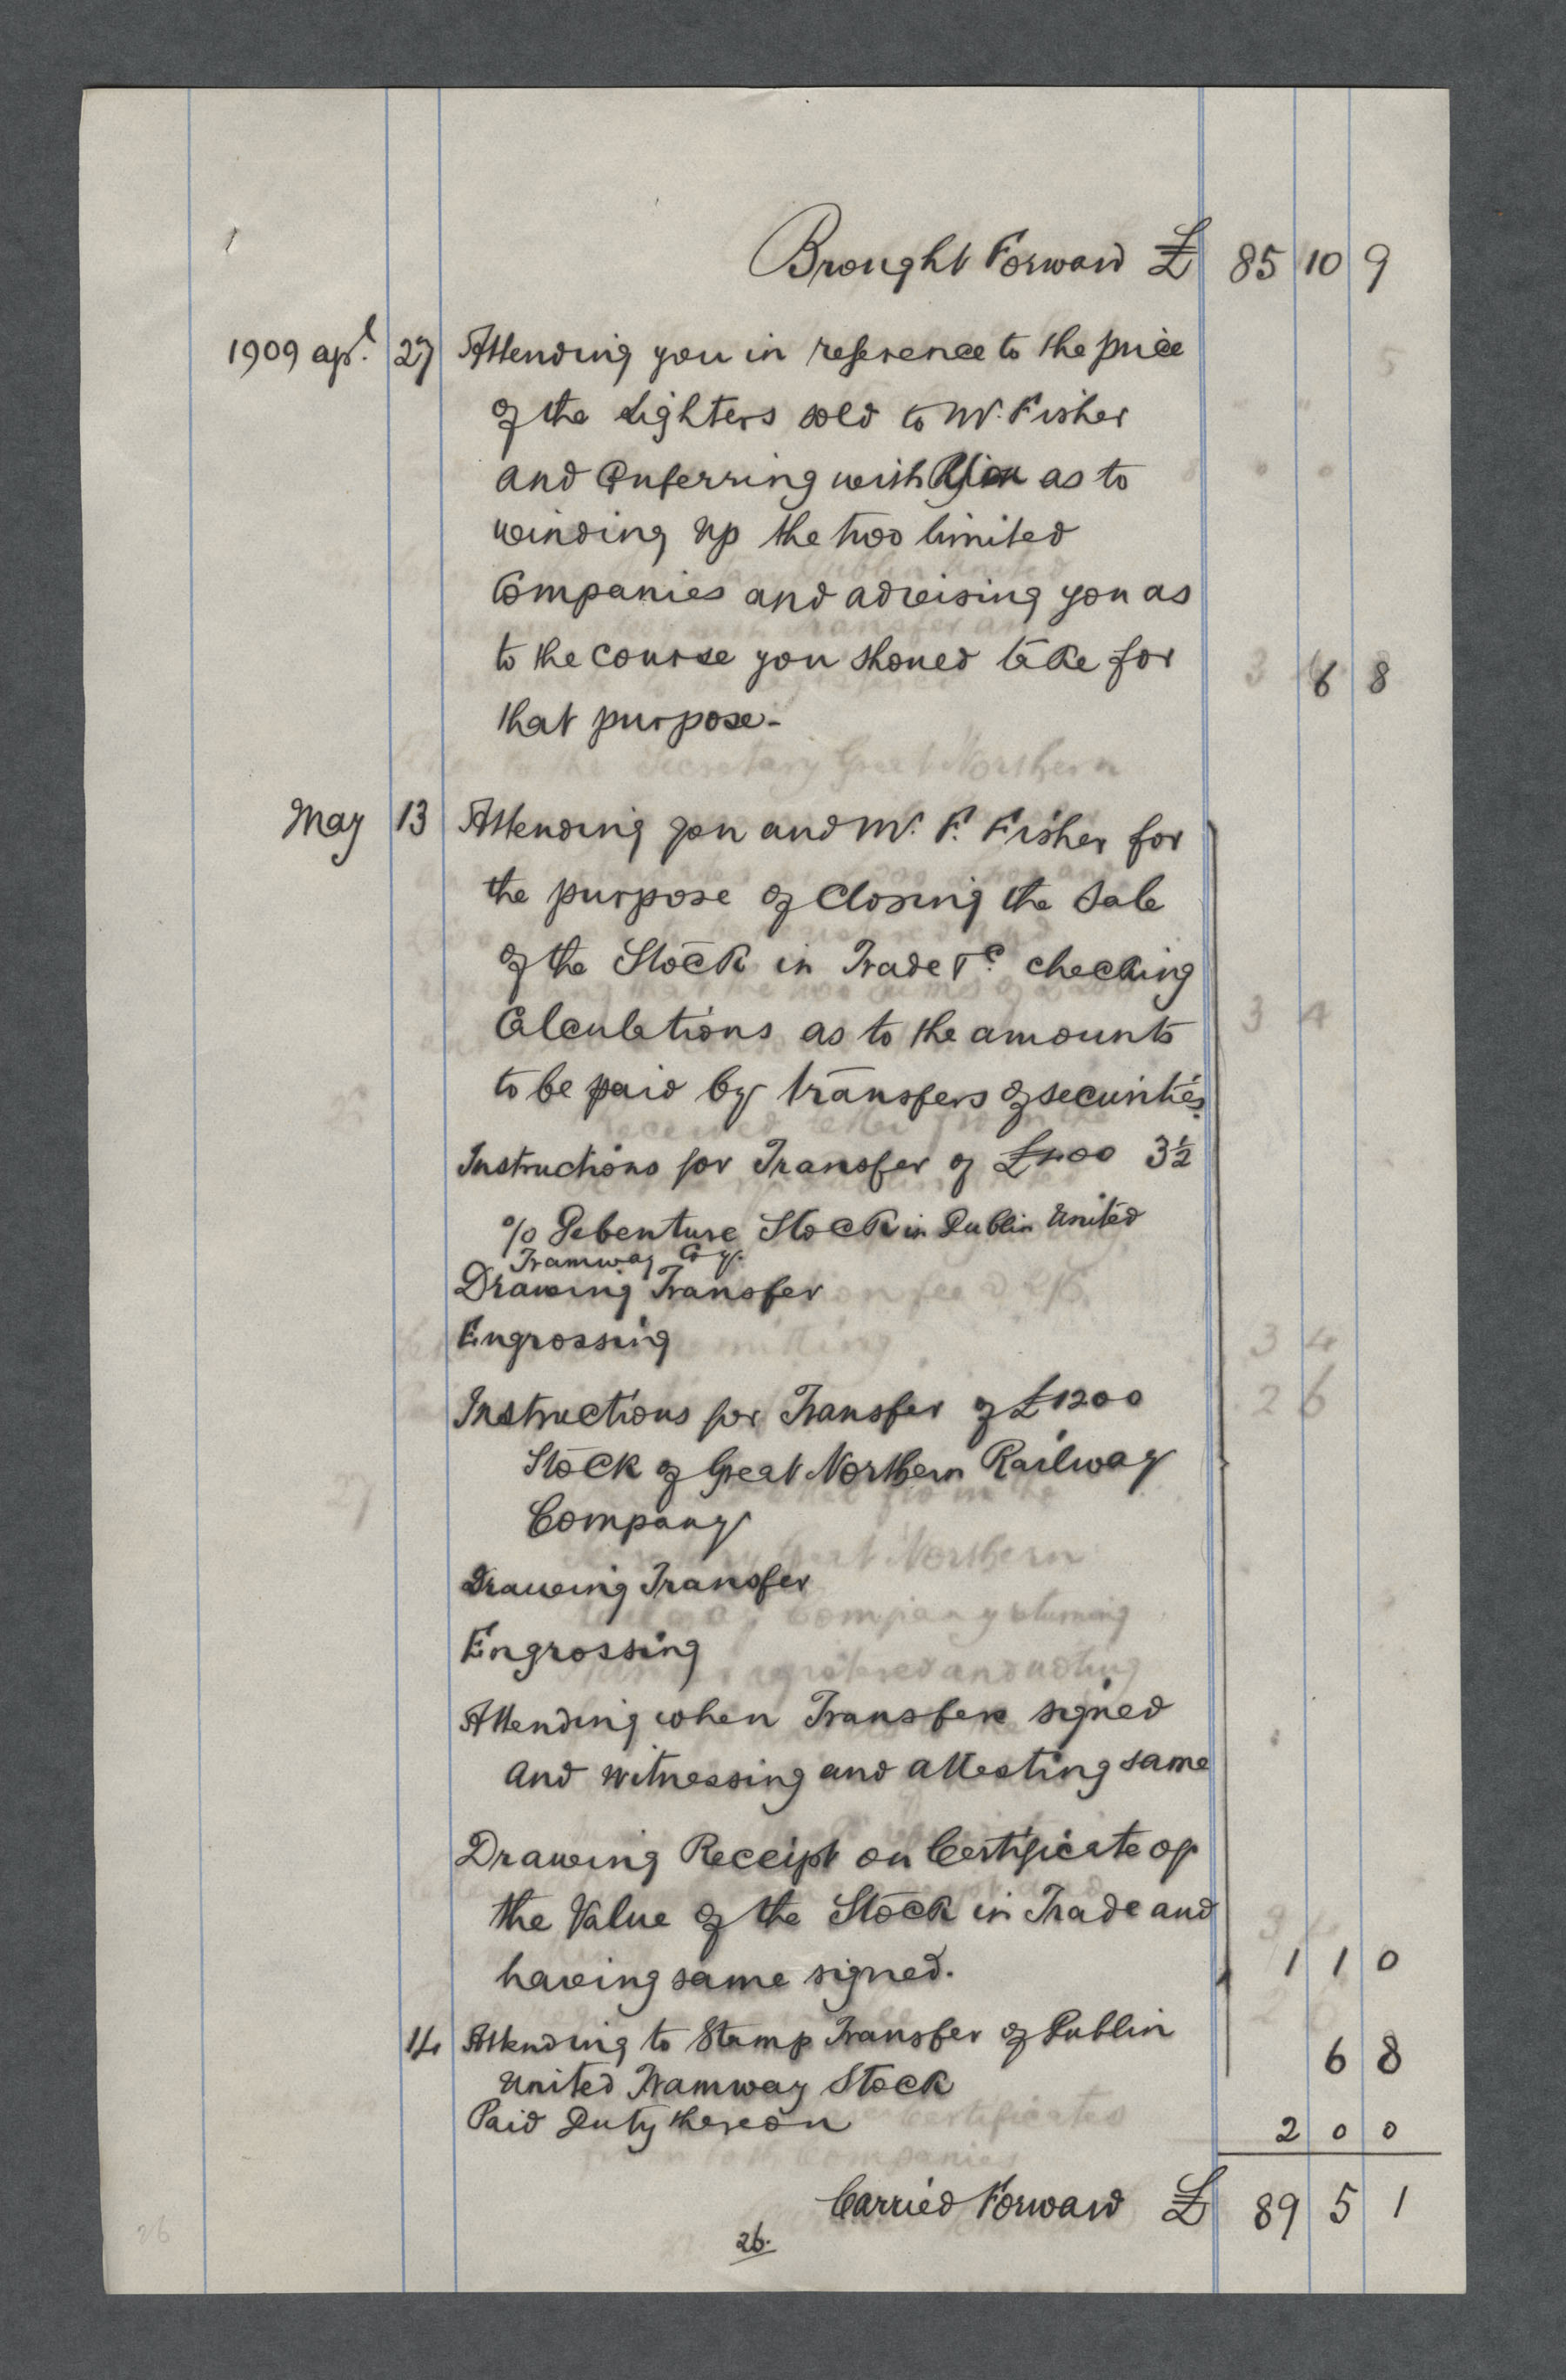 Brought Forward £ 85 10 9
1909 apl. 27 Attending you in reference to the price
of the Lighters sold to Mr. Fisher
and Conferring with you as to
winding up the two limited
Companies and advising you as
to the course you should take for 6 8
that purpose-
May 13 Attending you and Mr. F. Fisher for
the purpose of Closing the Sale
of the Stock in Trade &c. checking
Calculations as to the amounts
to be paid by transfers of securities.
Instructions for Transfer of £400 3½
% Debenture Stock in Dublin United
Tramway Coy.
Drawing Transfer
Engrossing
Instructions for Transfer of £1200
Stock of Great Northern Railway
Company
Drawing Transfer
Engrossing
Attending when Transfers signed
and witnessing and attesting same
Drawing Receipt on Certificate of
the Value of the Stock in Trade and
having same signed. 1 1 0
14 Attending to Stamp Transfer of Dublin
United Tramway Stock 6 8
Paid Duty thereon 2 0 0
Carried Forward £ 89 5 1
26.
26